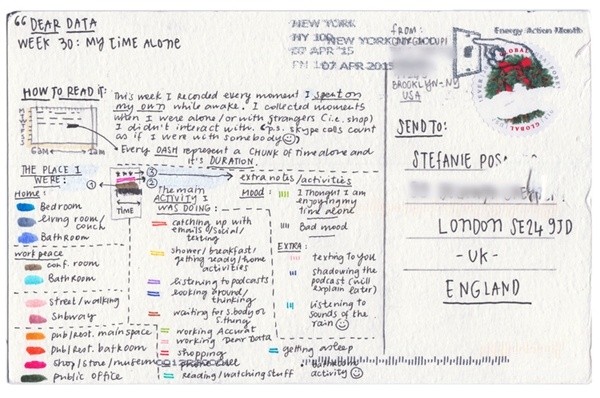 “DEAR DATA
WEEK 30: MY TIME ALONE
NEW YORK
NY 100
07 APR '15
NEW YORK NY
07 APR 2015
FROM:
BROOKLYN-NY
USA
Energy Action Month
GLOBAL
HOW TO READ IT:
This week I recorded every moment I spent on
my own while awake. I collected moments
when I were alone/or with strangers (i.e. shop)
I didn't interact with. (p.s. skype calls count
as if I were with somebody)
Every DASH represent a CHUNK of time alone and
it's DURATION.
M
T
W
T
F
S
S
6am
1am
THE PLACE I
WERE:
Home:
Bedroom
living room/
couch
Bathroom
work peace
conf. room
Bathroom
street/walking
Subway
pub/rest. main space
pub/rest. bathroom
shop/store/museum
public office
1
2
3
TIME
The main
ACTIVITY I
WAS DOING:
catching up with
emails/social/
texting
shower/breakfast/
getting ready/home
activities
listening to podcasts
looking around/
thinking
waiting for s.body or
s.thing
working Accurat
working Dear Data
shopping
phone call
reading/watching stuff
getting asleep
bathroom
activity
extra notes/activities
MOOD:
I thought I am
enjoying my
time alone
Bad mood
EXTRA:
texting to you
shadowing the
podcast (will
explain later)
listening to
sounds of the
rain
SEND TO:
STEFANIE POS
LONDON SE24 9JD
-UK-
ENGLAND